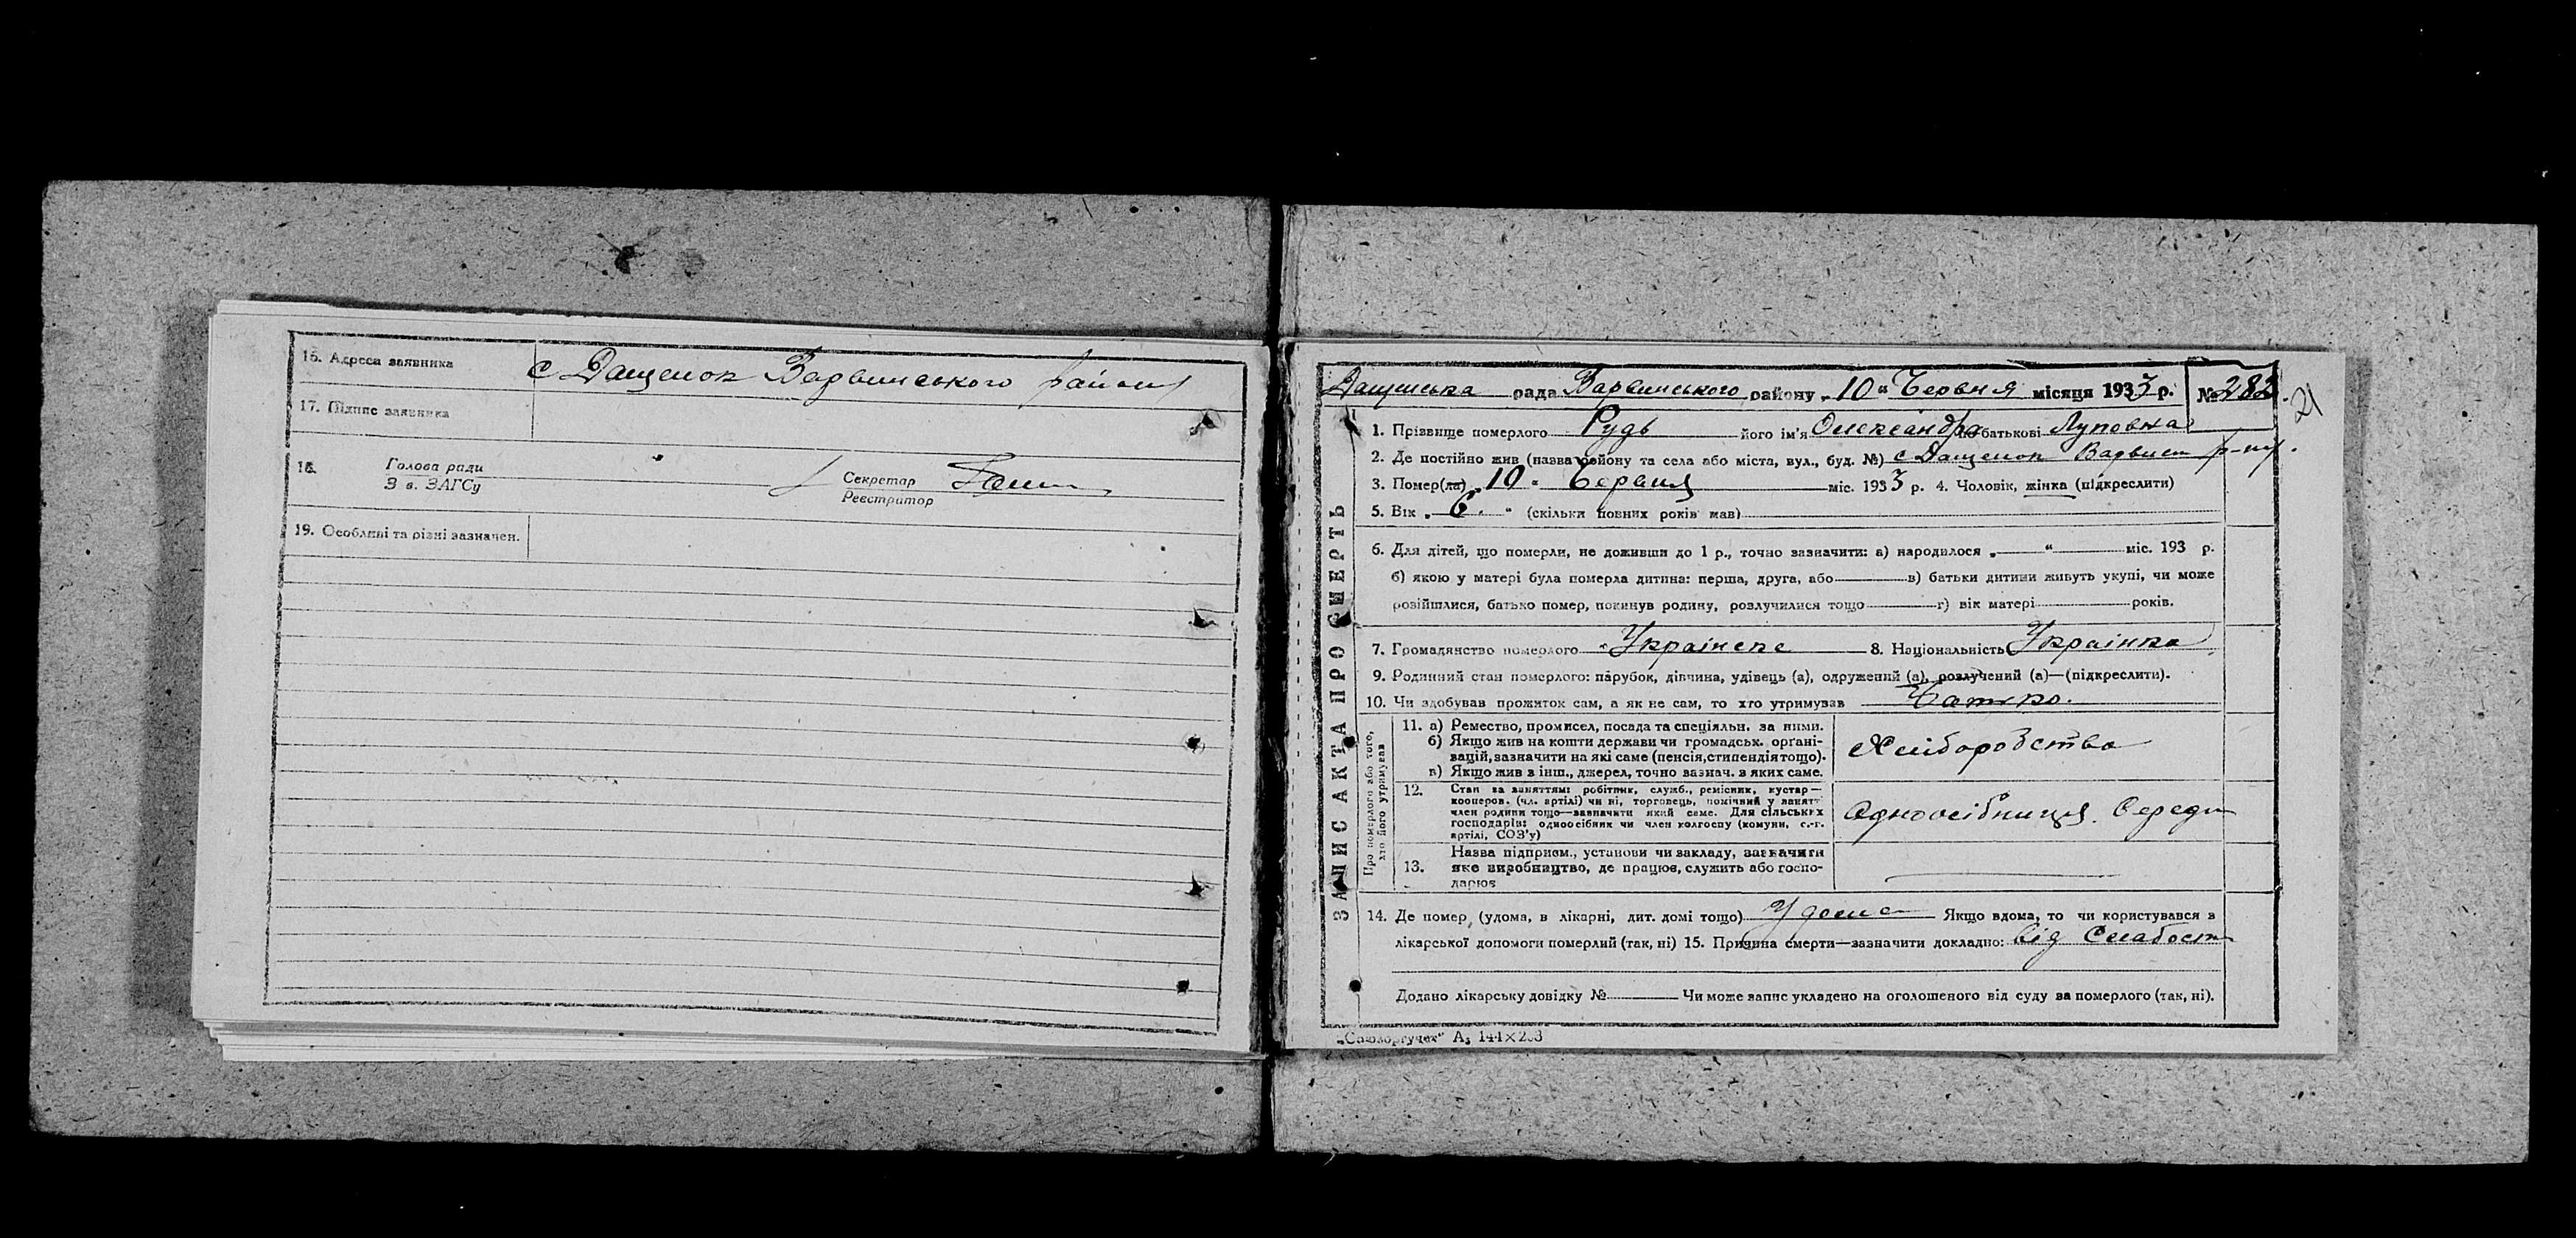 16. Адреса заявника с Дащенок Варвинського району
17. Підпис заявника
18. Голова ради
З в. ЗАГСу
Секретар
Реєстратор
19. Особливі та різні зазначен.
Дащенська рада Варвинського району „10“ Червня місяця 1933 р. № 282.
21
1. Прізвище померлого Рудь його ім'я Олександра по батькові
2. Де постійно жив (назва району та села або міста, вул., буд. №) с Дащенок Варвин р-ну.
3. Помер(ла) „10“ Червня міс. 1933 р. 4. Чоловік, жінка (підкреслити)
5. Вік „6.“ (скільки повних років мав)
6. Для дітей, що померли, не доживши до 1 р., точно зазначити: а) народилося „ “ міс. 193 р.
б) якою у матері була померла дитина: перша, друга, або в) батьки дитини живуть укупі, чи може
розійшлися, батько помер, покинув родину, розлучилися тощо г) вік матері років.
7. Громадянство померлого Українське 8. Національність Українка
9. Родинний стан померлого: парубок, дівчина, удівець (а), одружений (а), розлучений (а)—(підкреслити).
10. Чи здобував прожиток сам, а як не сам, то хто утримував Батько.
Про померлого або того,
хто його утримував
11. а) Ремество, промисел, посада та спеціяльн. за ними.
б) Якщо жив на кошти держави чи громадськ. органі-
зацій, зазначити на які саме (пенсія, стипендія тощо).
в) Якщо жив з інш., джерел, точно зазнач. з яких саме.
Хліборобство
12. Стан за заняттям: робітник, служб., ремісник, кустар—
кооперов. (чл. артілі) чи ні, торговець, помічний у занятті
член родини тощо—зазначити який саме. Для сільських
господарів: одноосібник чи член колгоспу (комуни, с.-г.
артілі, СОЗ'у)
Одноосібниця. Середн
13. Назва підприєм., установи чи закладу, зазначити
яке виробництво, де працює, служить або госпо-
дарює
14. Де помер, (удома, в лікарні, дит. домі тощо) У доме Якщо вдома, то чи користувався з
лікарської допомоги померлий (так, ні) 15. Причина смерти—зазначити докладно: від Слабости
Додано лікарську довідку № Чи може запис укладено на оголошеного від суду за померлого (так, ні).
ЗАПИС АКТА ПРО СМЕРТЬ
„Союзоргучет“ А₅ 144×203